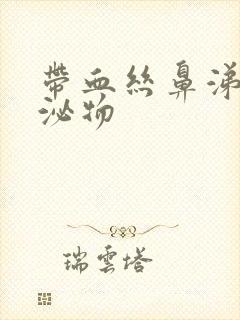 帶血絲鼻涕
泌物
瑞雲塔